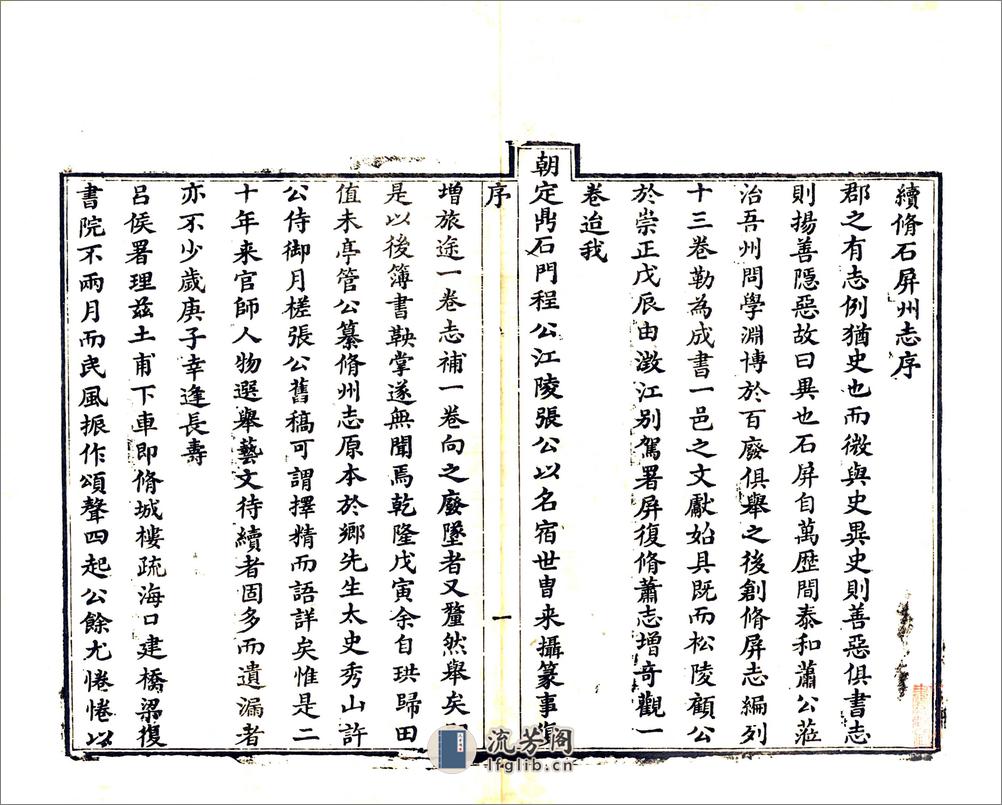 續脩石屏州志序
郡之有志例猶史也而微與史異史則善惡俱書志
則揚善隱惡故曰異也石屏自萬歷間泰和蕭公蒞
治吾州問學淵博於百廢俱舉之後創脩屏志編列
十三卷勒為成書一邑之文獻始具既而松陵顧公
於崇正戊辰由澂江別駕署屏復脩蕭志增奇觀一
卷迨我
朝定鼎石門程公江陵張公以名宿世胄来攝篆事
序
一
增旅途一卷志補一卷向之廢墜者又釐然舉矣
是以後簿書鞅掌遂無聞焉乾隆戊寅余自珙歸田
值未亭管公纂脩州志原本於鄉先生太史秀山許
公侍御月槎張公舊稿可謂擇精而語詳矣惟是二
十年来官師人物選舉藝文待續者固多而遺漏者
亦不少歲庚子幸逢長壽
呂侯署理兹土甫下車即脩城樓疏海口建橋梁復
書院不兩月而民風振作頌聲四起公餘尤惓惓以
流芳阁
lfglib.cn